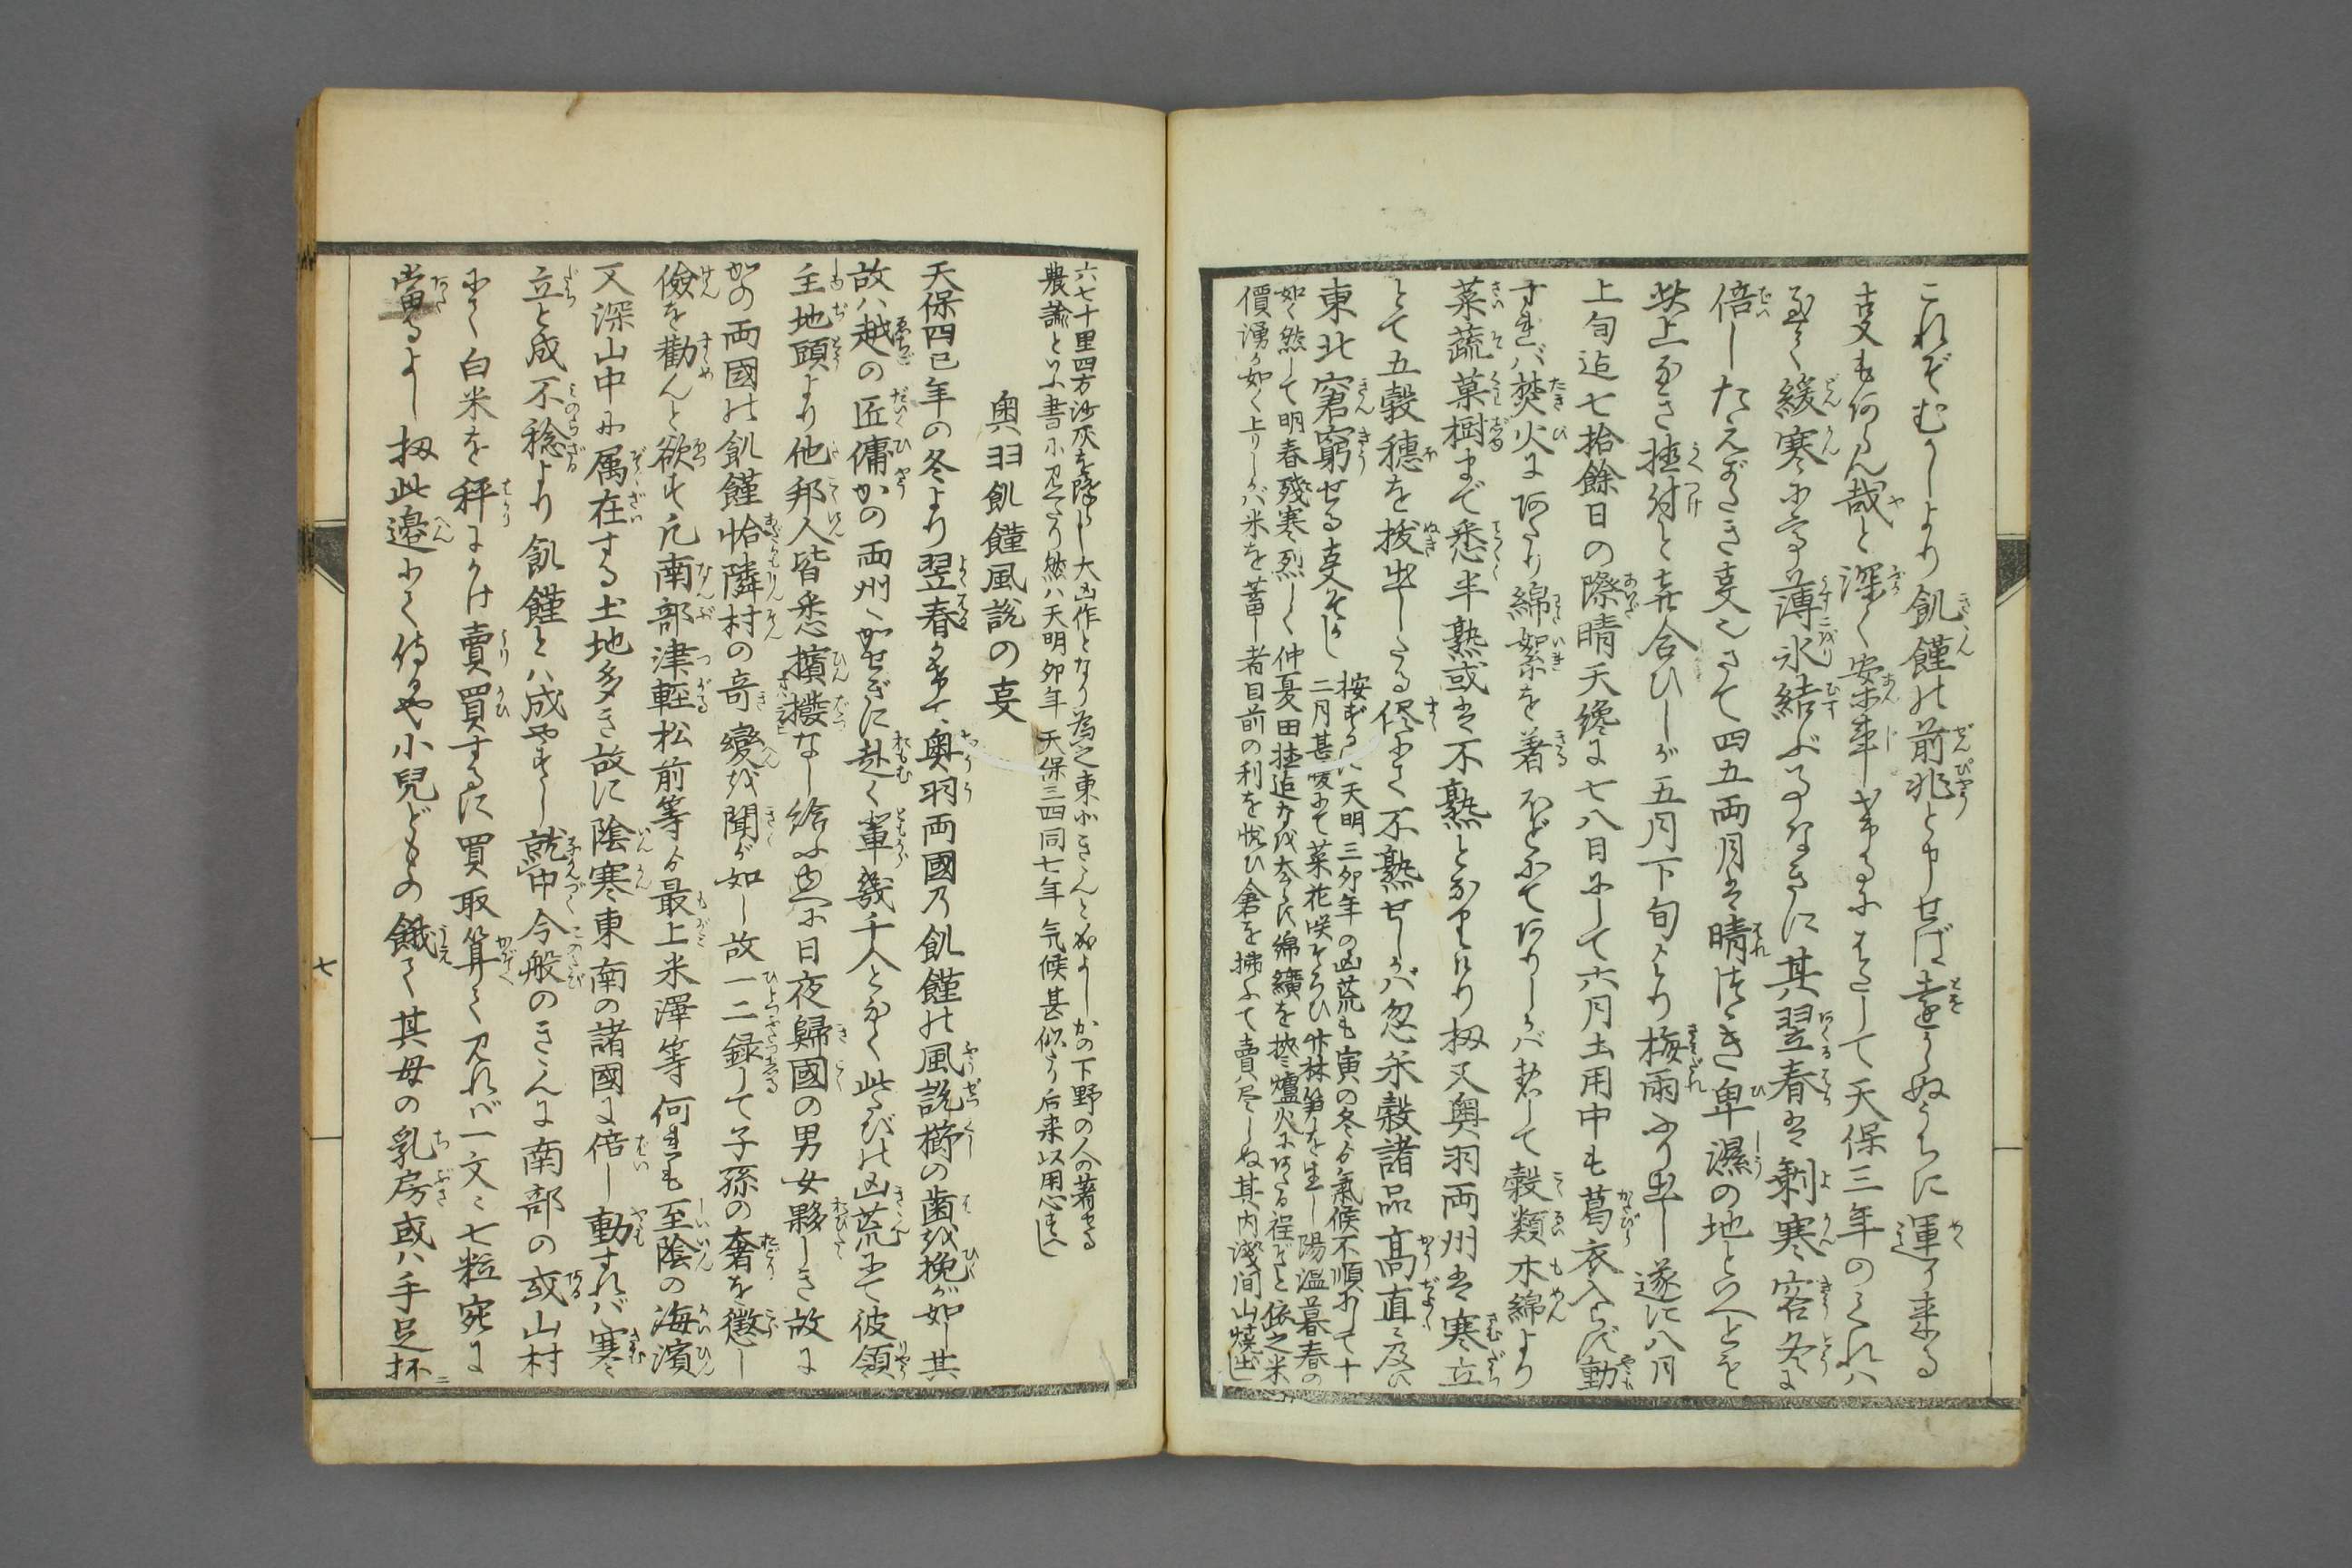 これぞむかしより飢饉の前兆と申せば遠からぬうちに運り来る
事も何らん哉と深く案事けるにはたして天保三年のくれハ
至て緩寒にして薄氷結ぶ事なきに其翌春は剰寒容冬に
倍したえがたき事也さて四五両月は晴続き卑濕の地といへども
此上なき植付と喜合ひしが五月下旬より梅雨ふり出し遂に八月
上旬迄七拾餘日の際晴天纔に七八日にして六月土用中も葛衣入らず動
すれば焚火にあたり綿絮を着るほどにてありしかバ都して穀類木綿より
菜蔬菓樹まで悉く半熟或は不熟となりけり扨又奥羽両州は寒立
とて五穀穂を拔出したる侭にて不熟せしかバ忽米穀諸品高直に及ひ
東北窘窮せる事なりし
按ずるに天明三卯年の凶荒も寅の冬より氣候不順にして十
二月甚暖にて菜花咲そろひ竹林笋を生し陽温暮春の
如く然して明春殘寒烈しく仲夏田植迄な綿纊を襟爐火にあたる程だと依之米
價湧か如く上りしかバ米を蓄し者目前の利を悦ひ倉を拂ふて賣尽しぬ其内淺间山燒出し
六七十里四方沙灰を降らし大凶作となり為之東北きゝんと成よしかの下野の人の著せる
農諭といふ書に見へたり然ハ天明卯年天保三四同七年気候甚似たり后来以用心すべし
奥羽飢饉風説の事
天保四巳年の冬より翌春かけて、奥羽両國乃飢饉の風説櫛の歯を挽が如し其
故ハ越の匠傭かの両州へかせぎに赴く輩幾千人となく此たびの凶荒にて彼領
主地頭より他邦人皆悉擯攓なし給ふ由にて日夜歸國の男女夥しき故に
かの両國の飢饉恰隣村の竒變を聞が如し故一二録して子孫の奢を懲し
儉を勸んと欲す凡南部津軽松前等より最上米澤等何れも至陰の海濱
又深山中に属在する土地多き故に陰寒東南の諸國に倍し動すれバ寒
立と成不稔より飢饉とハ成やすし就中今般のきゝんに南部の或山村
にて白米を秤にかけ賣買するに買取算て見れバ一文ニ七粒宛に
當るよし扨此邉にて侍るや小兒どもの餓て其母の乳房或ハ手足抔ニ
七